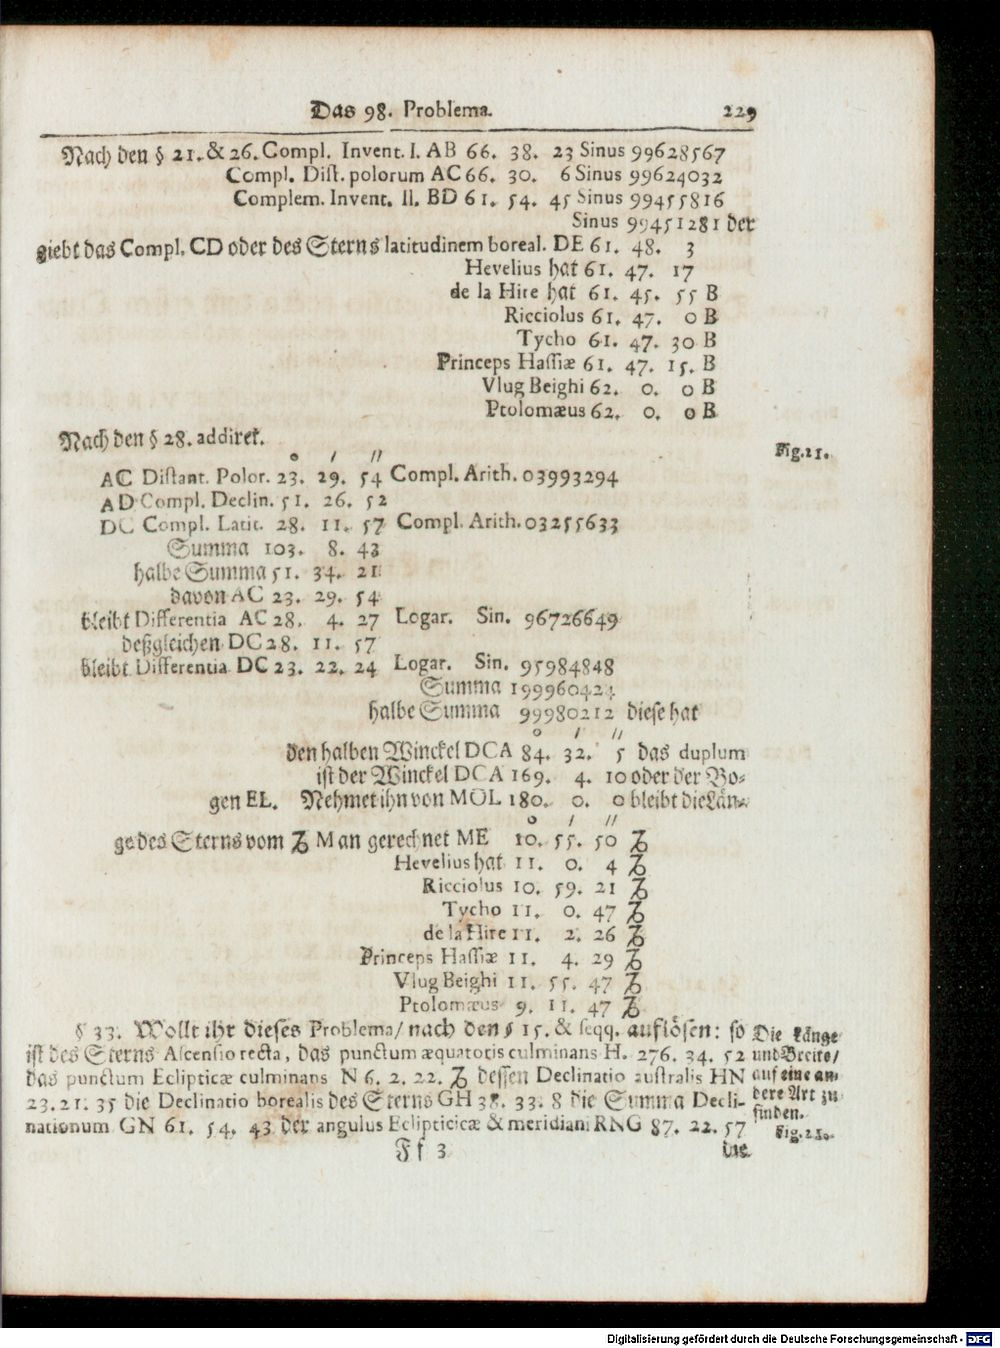 Das 98. Problema. 229
Nach den § 21. & 26. Compl. Invent. I. AB 66. 38. 23 Sinus 99628567
Compl. Dist. polorum AC 66. 30. 6 Sinus 99624032
Complem. Invent. II. BD 61. 54. 45 Sinus 99455816
Sinus 99451281 der
giebt das Compl. CD oder des Sterns latitudinem boreal. DE 61. 48. 3
Hevelius hat 61. 47. 17
de la Hire hat 61. 45. 55 B
Ricciolus 61. 47. 0 B
Tycho 61. 47. 30 B
Princeps Hassiæ 61. 47. 15. B
Vlug Beighi 62. 0. 0 B
Ptolomæus 62. 0. 0 B
Nach den § 28. addiret.
Fig. 21.
o / //
AC Distant. Polor. 23. 29. 54 Compl. Arith. 03993294
AD Compl. Declin. 51. 26. 52
DC Compl. Latit. 28. 11. 57 Compl. Arith. 03255633
Summa 103. 8. 43
halbe Summa 51. 34. 21
davon AC 23. 29. 54
bleibt Differentia AC 28. 4. 27 Logar. Sin. 96726649
deßgleichen DC 28. 11. 57
bleibt Differentia DC 23. 22. 24 Logar. Sin. 95984848
Summa 199960424
halbe Summa 99980212 diese hat
o / //
den halben Winckel DCA 84. 32. 5 das duplum
ist der Winckel DCA 169. 4. 10 oder der Bo-
gen EL. Nehmet ihn von MOL 180. 0. 0 bleibt die Län-
o / //
ge des Sterns vom ♑ M an gerechnet ME 10. 55. 50 ♑
Hevelius hat 11. 0. 4 ♑
Ricciolus 10. 59. 21 ♑
Tycho 11. 0. 47 ♑
de la Hire 11. 2. 26 ♑
Princeps Hassiæ 11. 4. 29 ♑
Vlug Beighi 11. 55. 47 ♑
Ptolomæus 9. 11. 47 ♑
§ 33. Wollt ihr dieses Problema / nach den § 15. & seqq. auflösen: so
ist des Sterns Ascensio recta, das punctum æquatoris culminans H. 276. 34. 52
das punctum Eclipticæ culminans N 6. 2. 22. ♑ dessen Declinatio australis HN
23. 21. 35 die Declinatio borealis des Sterns GH 38. 33. 8 die Summa Decli-
nationum GN 61. 54. 43 der angulus Eclipticicæ & meridiani RNG 87. 22. 57
Die Länge
und Breite /
auf eine an-
dere Art zu
finden.
Fig. 21.
Ff 3 die
Digitalisierung gefördert durch die Deutsche Forschungsgemeinschaft - DFG